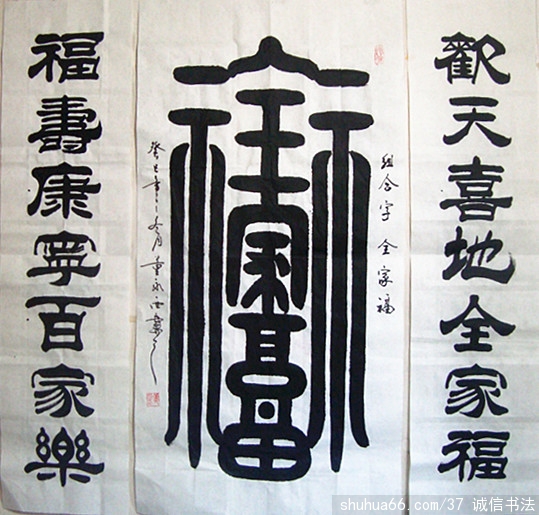 歡天喜地全家福
组合字 全家福
癸巳年冬月
福壽康寧百家樂
shuhua66.com/37 诚信书法